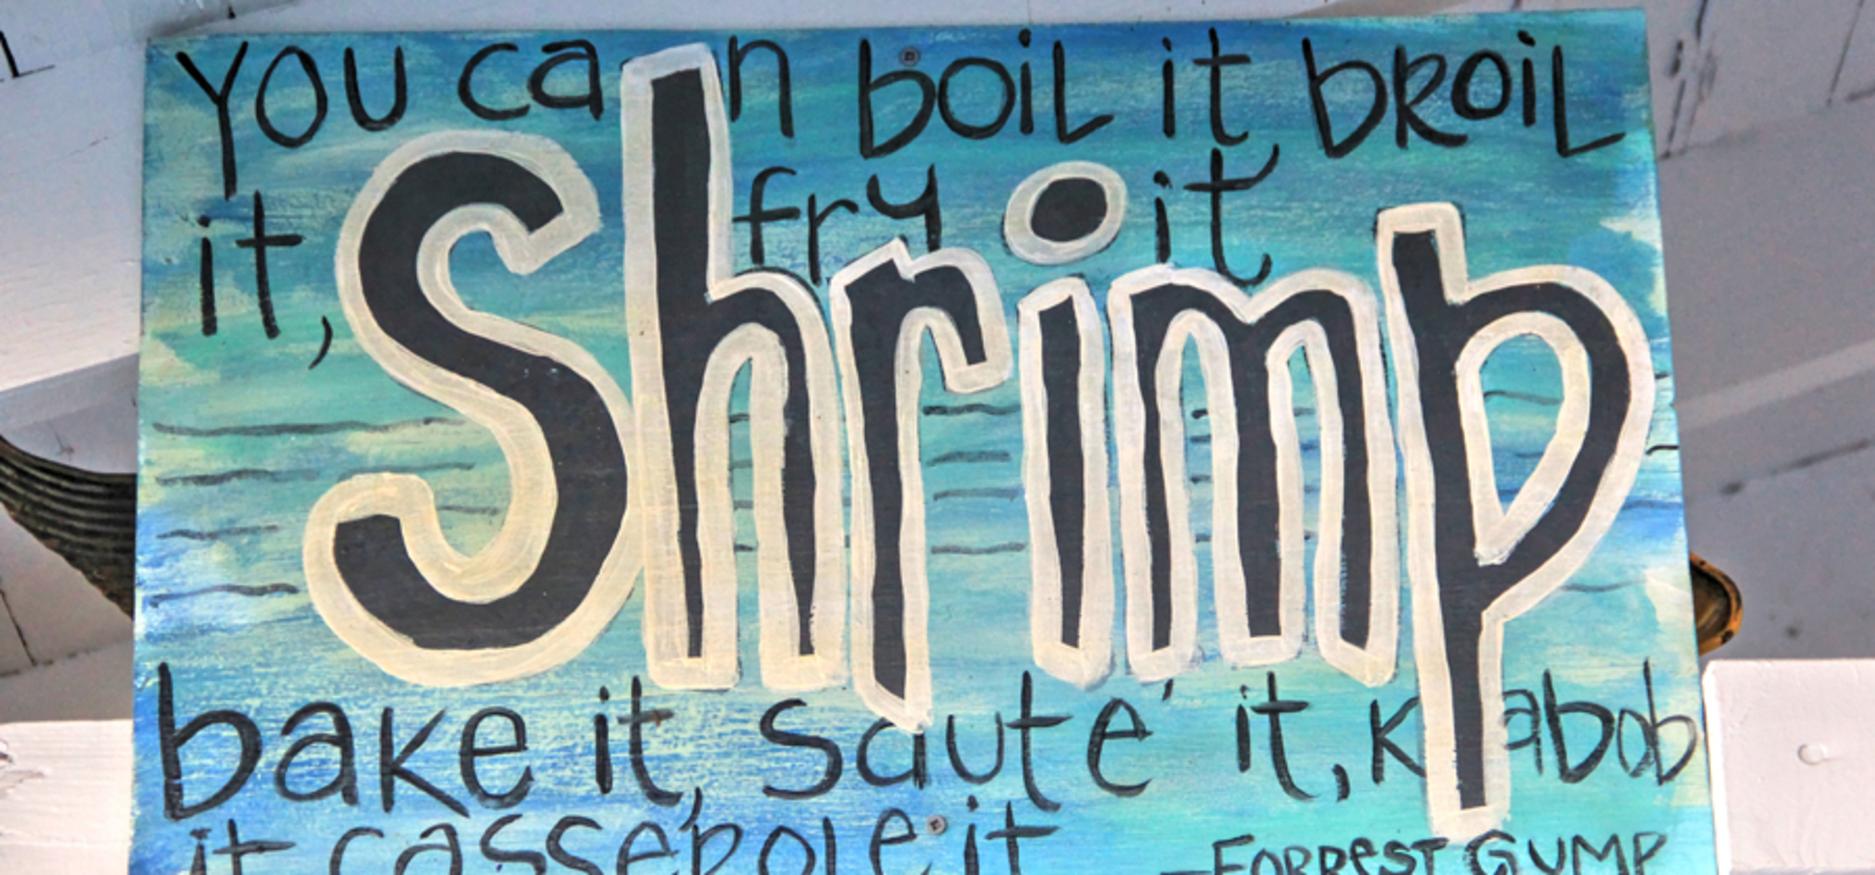 You can boil it broil
it, fry it
Shrimp
bake it, sauté it, kabob
it casserole it
—FORREST GUMP